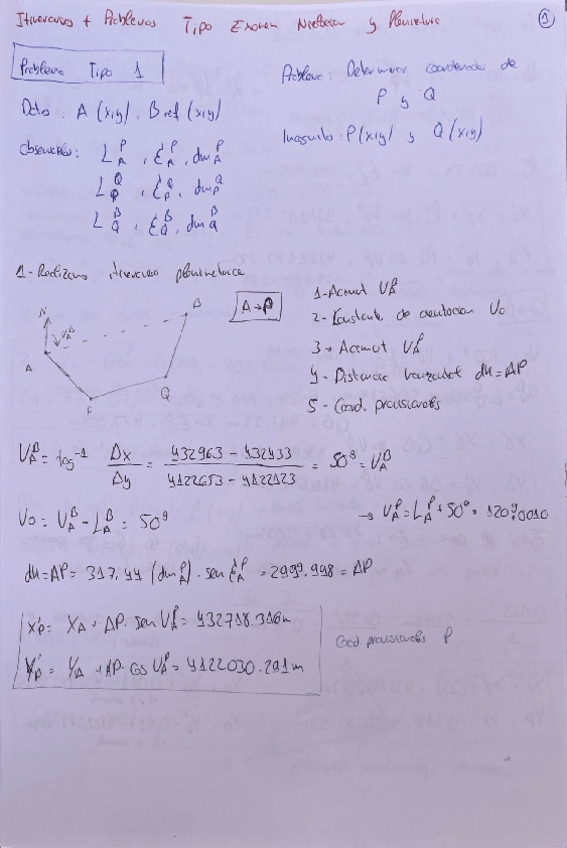 Itinerarios + Problemas Tipo Examen Nivelación y Planimetría
1
Problema Tipo 1
Problema: Determinar coordenadas de
P y Q
Datos: A (x,y). B ref (x,y)
Incógnita: P(x,y) y Q(x,y)
observación: L_A^P, ξ_A^P, dm_A^P
L_P^Q, ξ_P^Q, dm_P^Q
L_Q^B, ξ_Q^B, dm_Q^B
1- Realizamos itinerario planimétrico
A→P
N
V_A^B
A
B
P
Q
1- Acimut V_A^B
2- Constante de orientación V_0
3→ Acimut V_A^P
4- Distancia horizontal dH = AP
5- Coord. provisionales
V_A^B = tag^-1 Δx/Δy = (432963 - 432433)/(4122653 - 4122123) = 50^g = V_A^B
V_0 = V_A^B - L_A^B = 50^g
→ V_A^P = L_A^P + 50^g = 120^g.0010
dH = AP = 317.44 (dm_A^P). sen ξ_A^P = 299.998 = AP
X'_P = X_A + AP. sen V_A^P = 432718.316m
Y'_P = Y_A + AP. cos V_A^P = 4122030.291m
Coord provisionales P